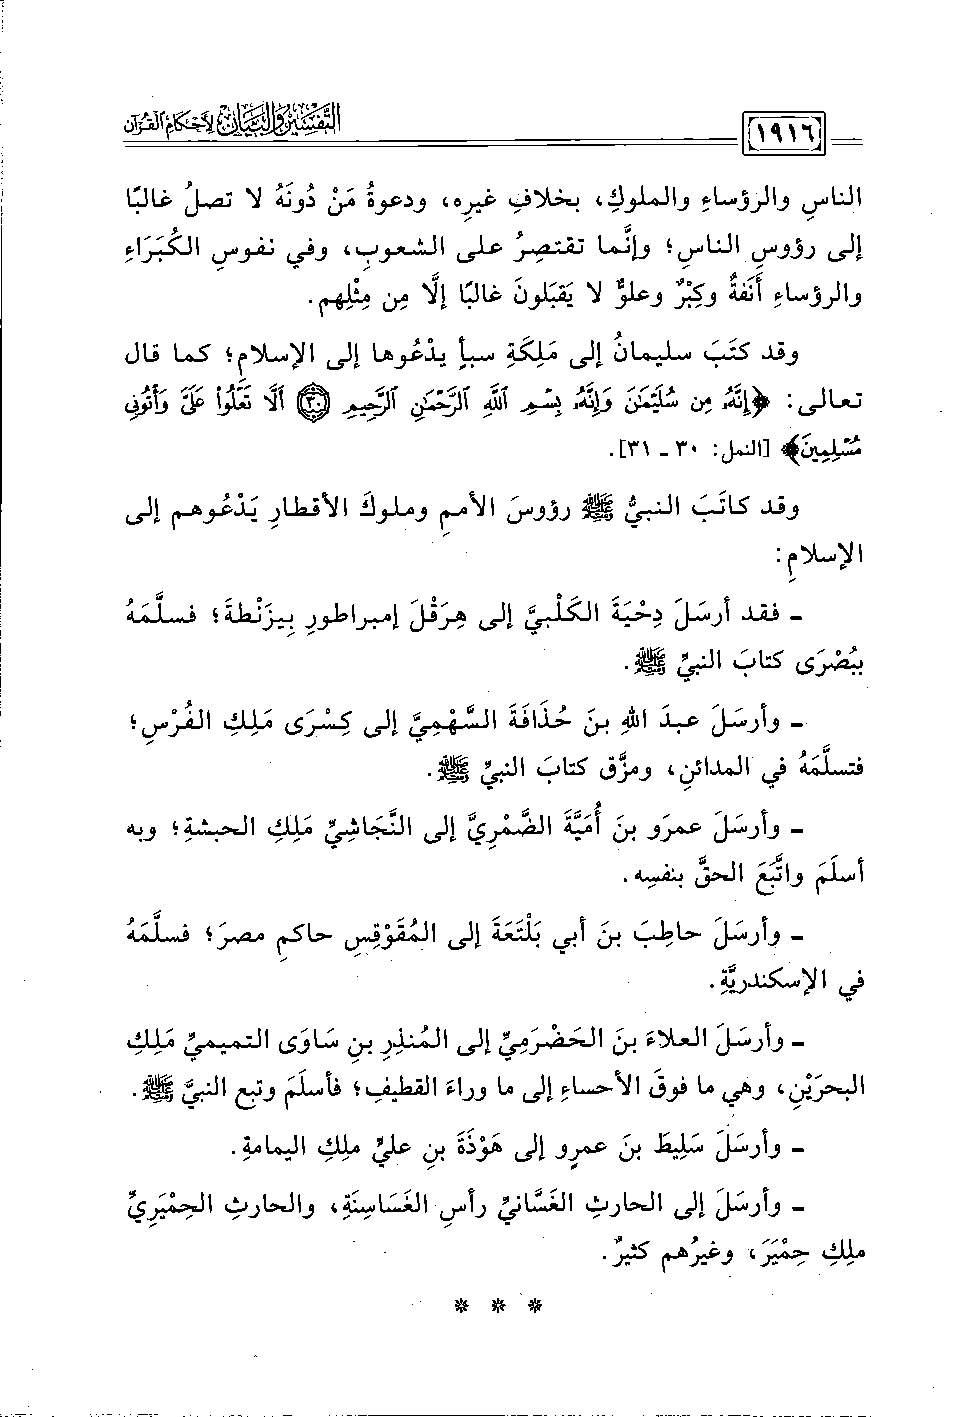 ١٩١٦
التفسير والبيان لأحكام القرآن
الناسِ والرؤساءِ والملوكِ، بخلافِ غيرِه، ودعوةُ مَنْ دُونَهُ لا تصلُ غالبًا
إلى رؤوسِ الناسِ؛ وإنَّما تقتصِرُ على الشعوبِ، وفي نفوسِ الكُبَرَاءِ
والرؤساءِ أَنَفةٌ وكِبْرٌ وعلوٌّ لا يَقبَلونَ غالبًا إلَّا مِن مِثْلِهم.
وقد كتَبَ سليمانُ إلى مَلِكَةِ سبأٍ يدْعُوها إلى الإسلامِ؛ كما قال
تعالى: ﴿إِنَّهُۥ مِن سُلَيْمَٰنَ وَإِنَّهُۥ بِسْمِ ٱللَّهِ ٱلرَّحْمَٰنِ ٱلرَّحِيمِ ۝٣٠ أَلَّا تَعْلُوا۟ عَلَىَّ وَأْتُونِى
مُسْلِمِينَ﴾ [النمل: ٣٠ ـ ٣١].
وقد كاتَبَ النبيُّ ﷺ رؤوسَ الأممِ وملوكَ الأقطارِ يَدْعُوهم إلى
الإسلامِ:
ـ فقد أرسَلَ دِحْيَةَ الكَلْبيَّ إلى هِرَقْلَ إمبراطورِ بِيزَنْطةَ؛ فسلَّمَهُ
ببُصْرَى كتابَ النبيِّ ﷺ.
ـ وأرسَلَ عبدَ اللهِ بنَ حُذَافَةَ السَّهْمِيَّ إلى كِسْرَى مَلِكِ الفُرْسِ؛
فتسلَّمَهُ في المدائنِ، ومزَّق كتابَ النبيِّ ﷺ.
ـ وأرسَلَ عمرَو بنَ أُمَيَّةَ الضَّمْرِيَّ إلى النَّجَاشِيِّ مَلِكِ الحبشةِ؛ وبه
أسلَمَ واتَّبَعَ الحقَّ بنفسِه.
ـ وأرسَلَ حاطِبَ بنَ أبي بَلْتَعَةَ إلى المُقَوْقِسِ حاكمِ مصرَ؛ فسلَّمَهُ
في الإسكندريَّةِ.
ـ وأرسَلَ العلاءَ بنَ الحَضْرَمِيِّ إلى المُنذِرِ بنِ سَاوَى التميميِّ مَلِكِ
البحرَيْنِ، وهي ما فوقَ الأحساءِ إلى ما وراءَ القطيفِ؛ فأسلَمَ وتبع النبيَّ ﷺ.
ـ وأرسَلَ سَلِيطَ بنَ عمرٍو إلى هَوْذَةَ بنِ عليٍّ ملِكِ اليمامةِ.
ـ وأرسَلَ إلى الحارثِ الغَسَّانيِّ رأسِ الغَسَاسِنَةِ، والحارثِ الحِمْيَرِيِّ
ملِكِ حِمْيَرَ، وغيرُهم كثيرٌ.
* * *